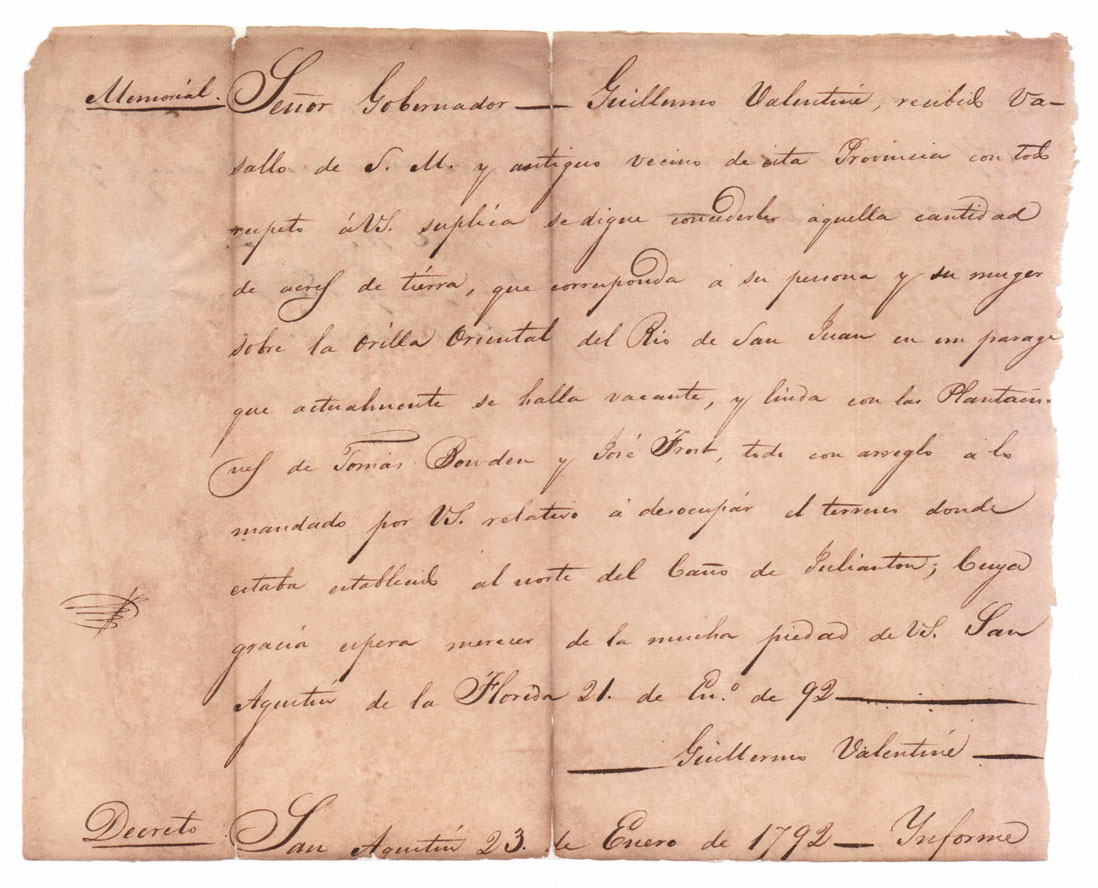 Memorial. Señor Gobernador — Guillermo Valentine, recibido Va-
sallo de S. M. y antiguo vecino de esta Provincia con todo
respeto á VS. suplíca se digne concederle aquella cantidad
de acres de tiérra, que corresponda a su persona y su muger
sobre la Orilla Oriental del Rio de San Juan en un parage
que actualmente se halla vacante, y linda con las Plantacio-
nes de Tomás Bowden y José Frost, todo con arreglo a lo
mandado por VS. relativo á desocupár el terreno donde
estaba establecido al norte del Caño de Julianton; Cuya
gracia espera merecer de la mucha piedad de VS. San
Agustin de la Florida 21. de En.º de 92
Guillermo Valentine
Decreto San Agustin 23. de Enero de 1792 — Informe